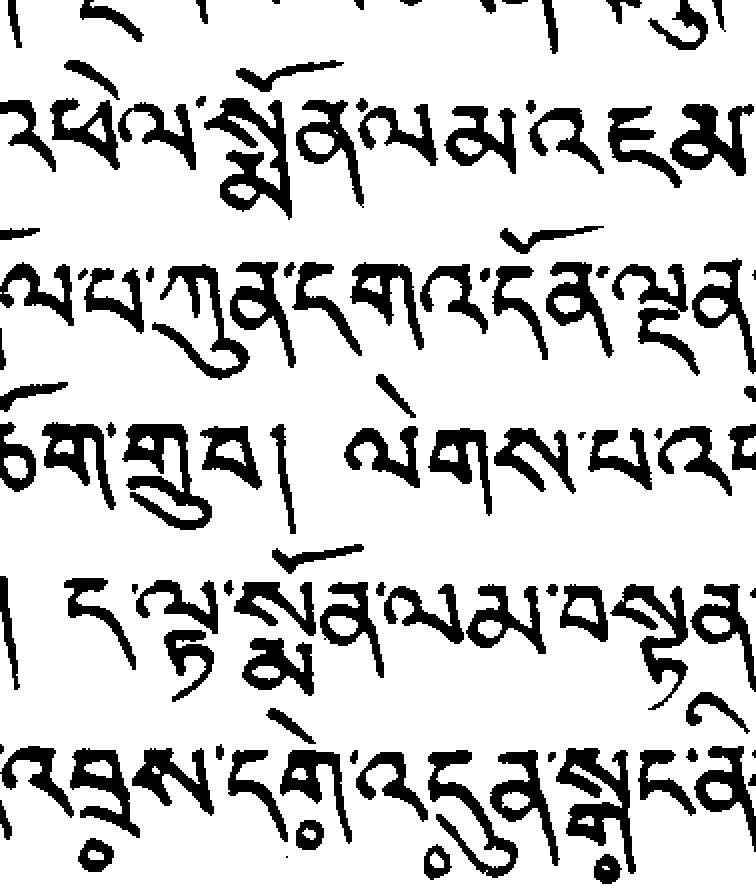 འཕེལ་སྨོན་ལམ་འཇམ
ལ་པ་ཀུན་དགའ་དོན་ལྡན
གྲུབ། ལེགས་པ་
། ད་ལྟ་སྨོན་ལམ་བསྟན
འབྲ༷ས་དགེ༷་འདུ༷ན་སྒ༷ང་ནི